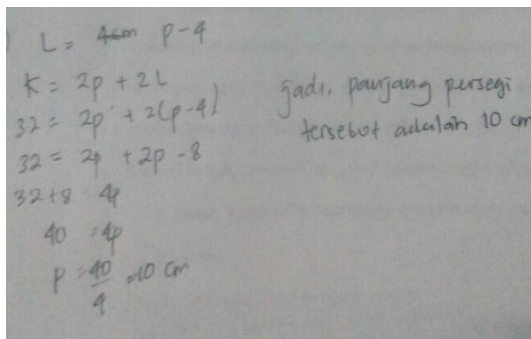 L = p-4
K = 2p + 2L
32 = 2p + 2(p-4)
32 = 2p + 2p - 8
32+8 = 4p
40 = 4p
p = 40/4 = 10 cm
jadi, panjang persegi
tersebut adalah 10 cm